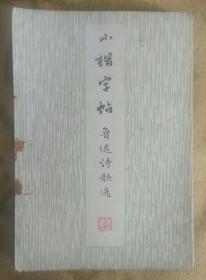 小楷字帖
鲁迅詩歌选